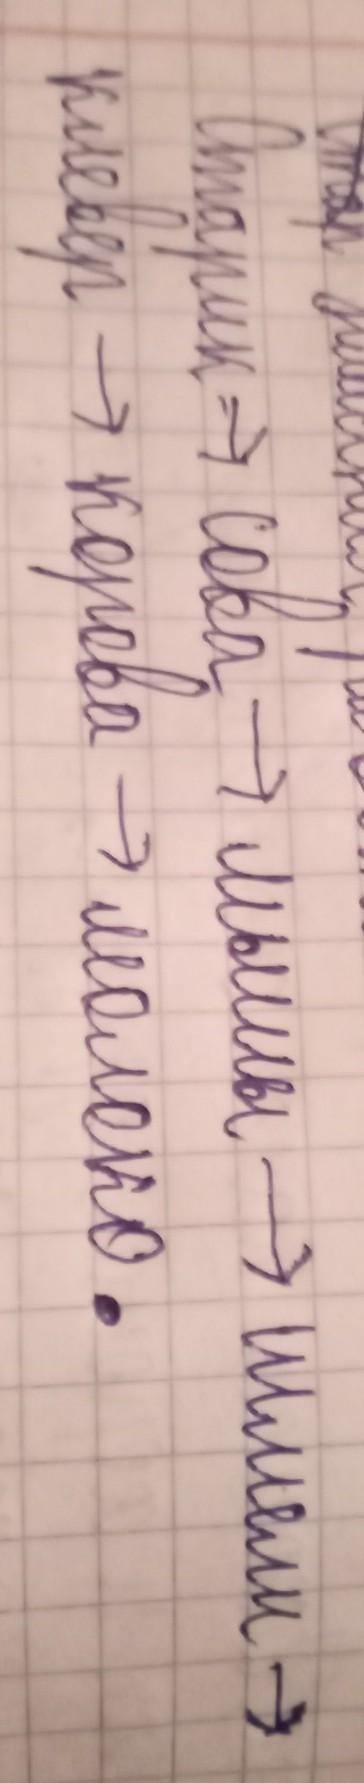 Старик → сова → мыши → шмели →
клевер → корова → молоко.